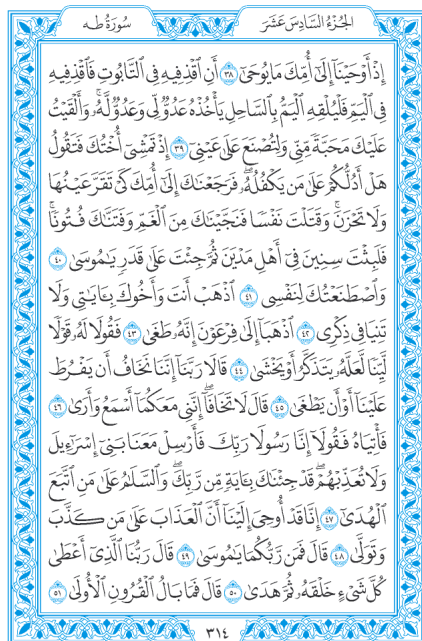 الجزء السادس عشر
سورة طه
إِذْ أَوْحَيْنَا إِلَىٰ أُمِّكَ مَا يُوحَىٰ ٣٨ أَنِ اقْذِفِيهِ فِي التَّابُوتِ فَاقْذِفِيهِ
فِي الْيَمِّ فَلْيُلْقِهِ الْيَمُّ بِالسَّاحِلِ يَأْخُذْهُ عَدُوٌّ لِّي وَعَدُوٌّ لَّهُ ۚ وَأَلْقَيْتُ
عَلَيْكَ مَحَبَّةً مِّنِّي وَلِتُصْنَعَ عَلَىٰ عَيْنِي ٣٩ إِذْ تَمْشِي أُخْتُكَ فَتَقُولُ
هَلْ أَدُلُّكُمْ عَلَىٰ مَن يَكْفُلُهُ ۖ فَرَجَعْنَاكَ إِلَىٰ أُمِّكَ كَيْ تَقَرَّ عَيْنُهَا
وَلَا تَحْزَنَ ۚ وَقَتَلْتَ نَفْسًا فَنَجَّيْنَاكَ مِنَ الْغَمِّ وَفَتَنَّاكَ فُتُونًا ۚ
فَلَبِثْتَ سِنِينَ فِي أَهْلِ مَدْيَنَ ثُمَّ جِئْتَ عَلَىٰ قَدَرٍ يَامُوسَىٰ ٤٠
وَاصْطَنَعْتُكَ لِنَفْسِي ٤١ اذْهَبْ أَنتَ وَأَخُوكَ بِآيَاتِي وَلَا
تَنِيَا فِي ذِكْرِي ٤٢ اذْهَبَا إِلَىٰ فِرْعَوْنَ إِنَّهُ طَغَىٰ ٤٣ فَقُولَا لَهُ قَوْلًا
لَّيِّنًا لَّعَلَّهُ يَتَذَكَّرُ أَوْ يَخْشَىٰ ٤٤ قَالَا رَبَّنَا إِنَّنَا نَخَافُ أَن يَفْرُطَ
عَلَيْنَا أَوْ أَن يَطْغَىٰ ٤٥ قَالَ لَا تَخَافَا ۖ إِنَّنِي مَعَكُمَا أَسْمَعُ وَأَرَىٰ ٤٦
فَأْتِيَاهُ فَقُولَا إِنَّا رَسُولَا رَبِّكَ فَأَرْسِلْ مَعَنَا بَنِي إِسْرَائِيلَ
وَلَا تُعَذِّبْهُمْ ۖ قَدْ جِئْنَاكَ بِآيَةٍ مِّن رَّبِّكَ ۖ وَالسَّلَامُ عَلَىٰ مَنِ اتَّبَعَ
الْهُدَىٰ ٤٧ إِنَّا قَدْ أُوحِيَ إِلَيْنَا أَنَّ الْعَذَابَ عَلَىٰ مَن كَذَّبَ
وَتَوَلَّىٰ ٤٨ قَالَ فَمَن رَّبُّكُمَا يَامُوسَىٰ ٤٩ قَالَ رَبُّنَا الَّذِي أَعْطَىٰ
كُلَّ شَيْءٍ خَلْقَهُ ثُمَّ هَدَىٰ ٥٠ قَالَ فَمَا بَالُ الْقُرُونِ الْأُولَىٰ ٥١
٣١٤